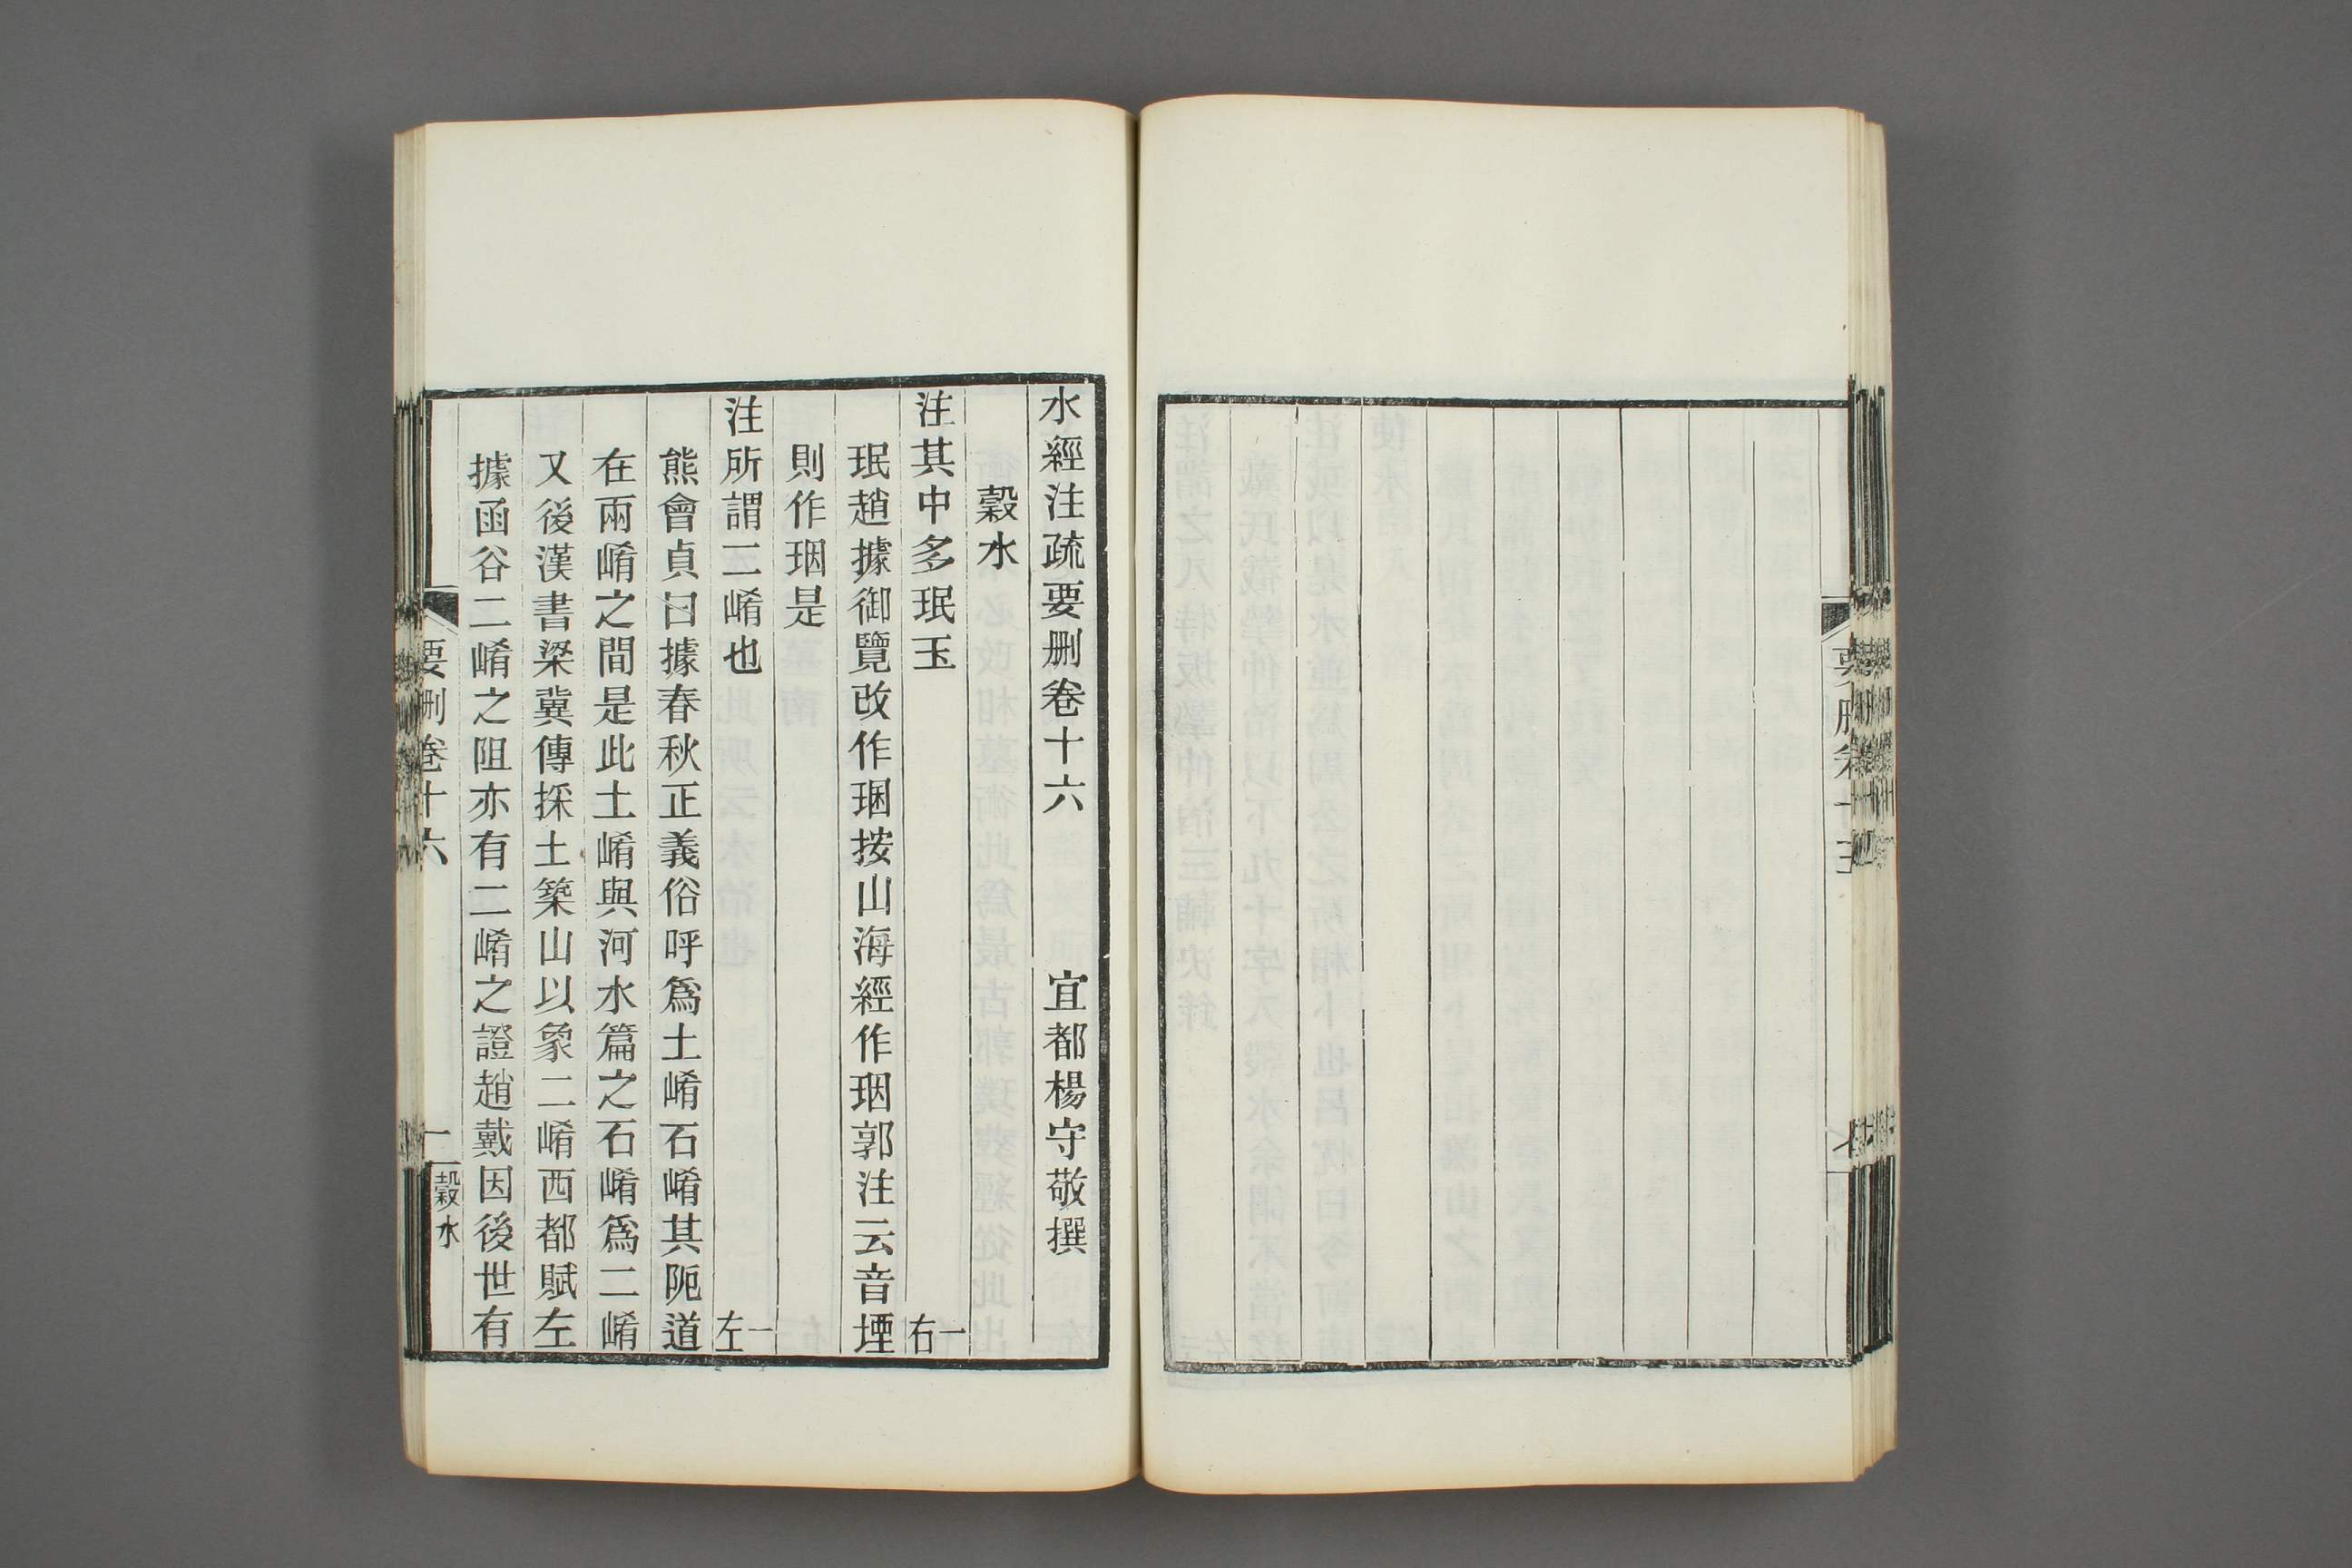 水經注疏要刪卷十六　宜都楊守敬撰
穀水
注其中多珉玉　一右
珉趙據御覽改作琨按山海經作珚郭注云音堙
則作珚是
注所謂二崤也　一左
熊會貞曰據春秋正義俗呼爲土崤石崤其阨道
在兩崤之間是此土崤與河水篇之石崤爲二崤
又後漢書梁冀傳採土築山以象二崤西都賦左
據函谷二崤之阻亦有二崤之證趙戴因後世有
要刪卷十六
一
穀水